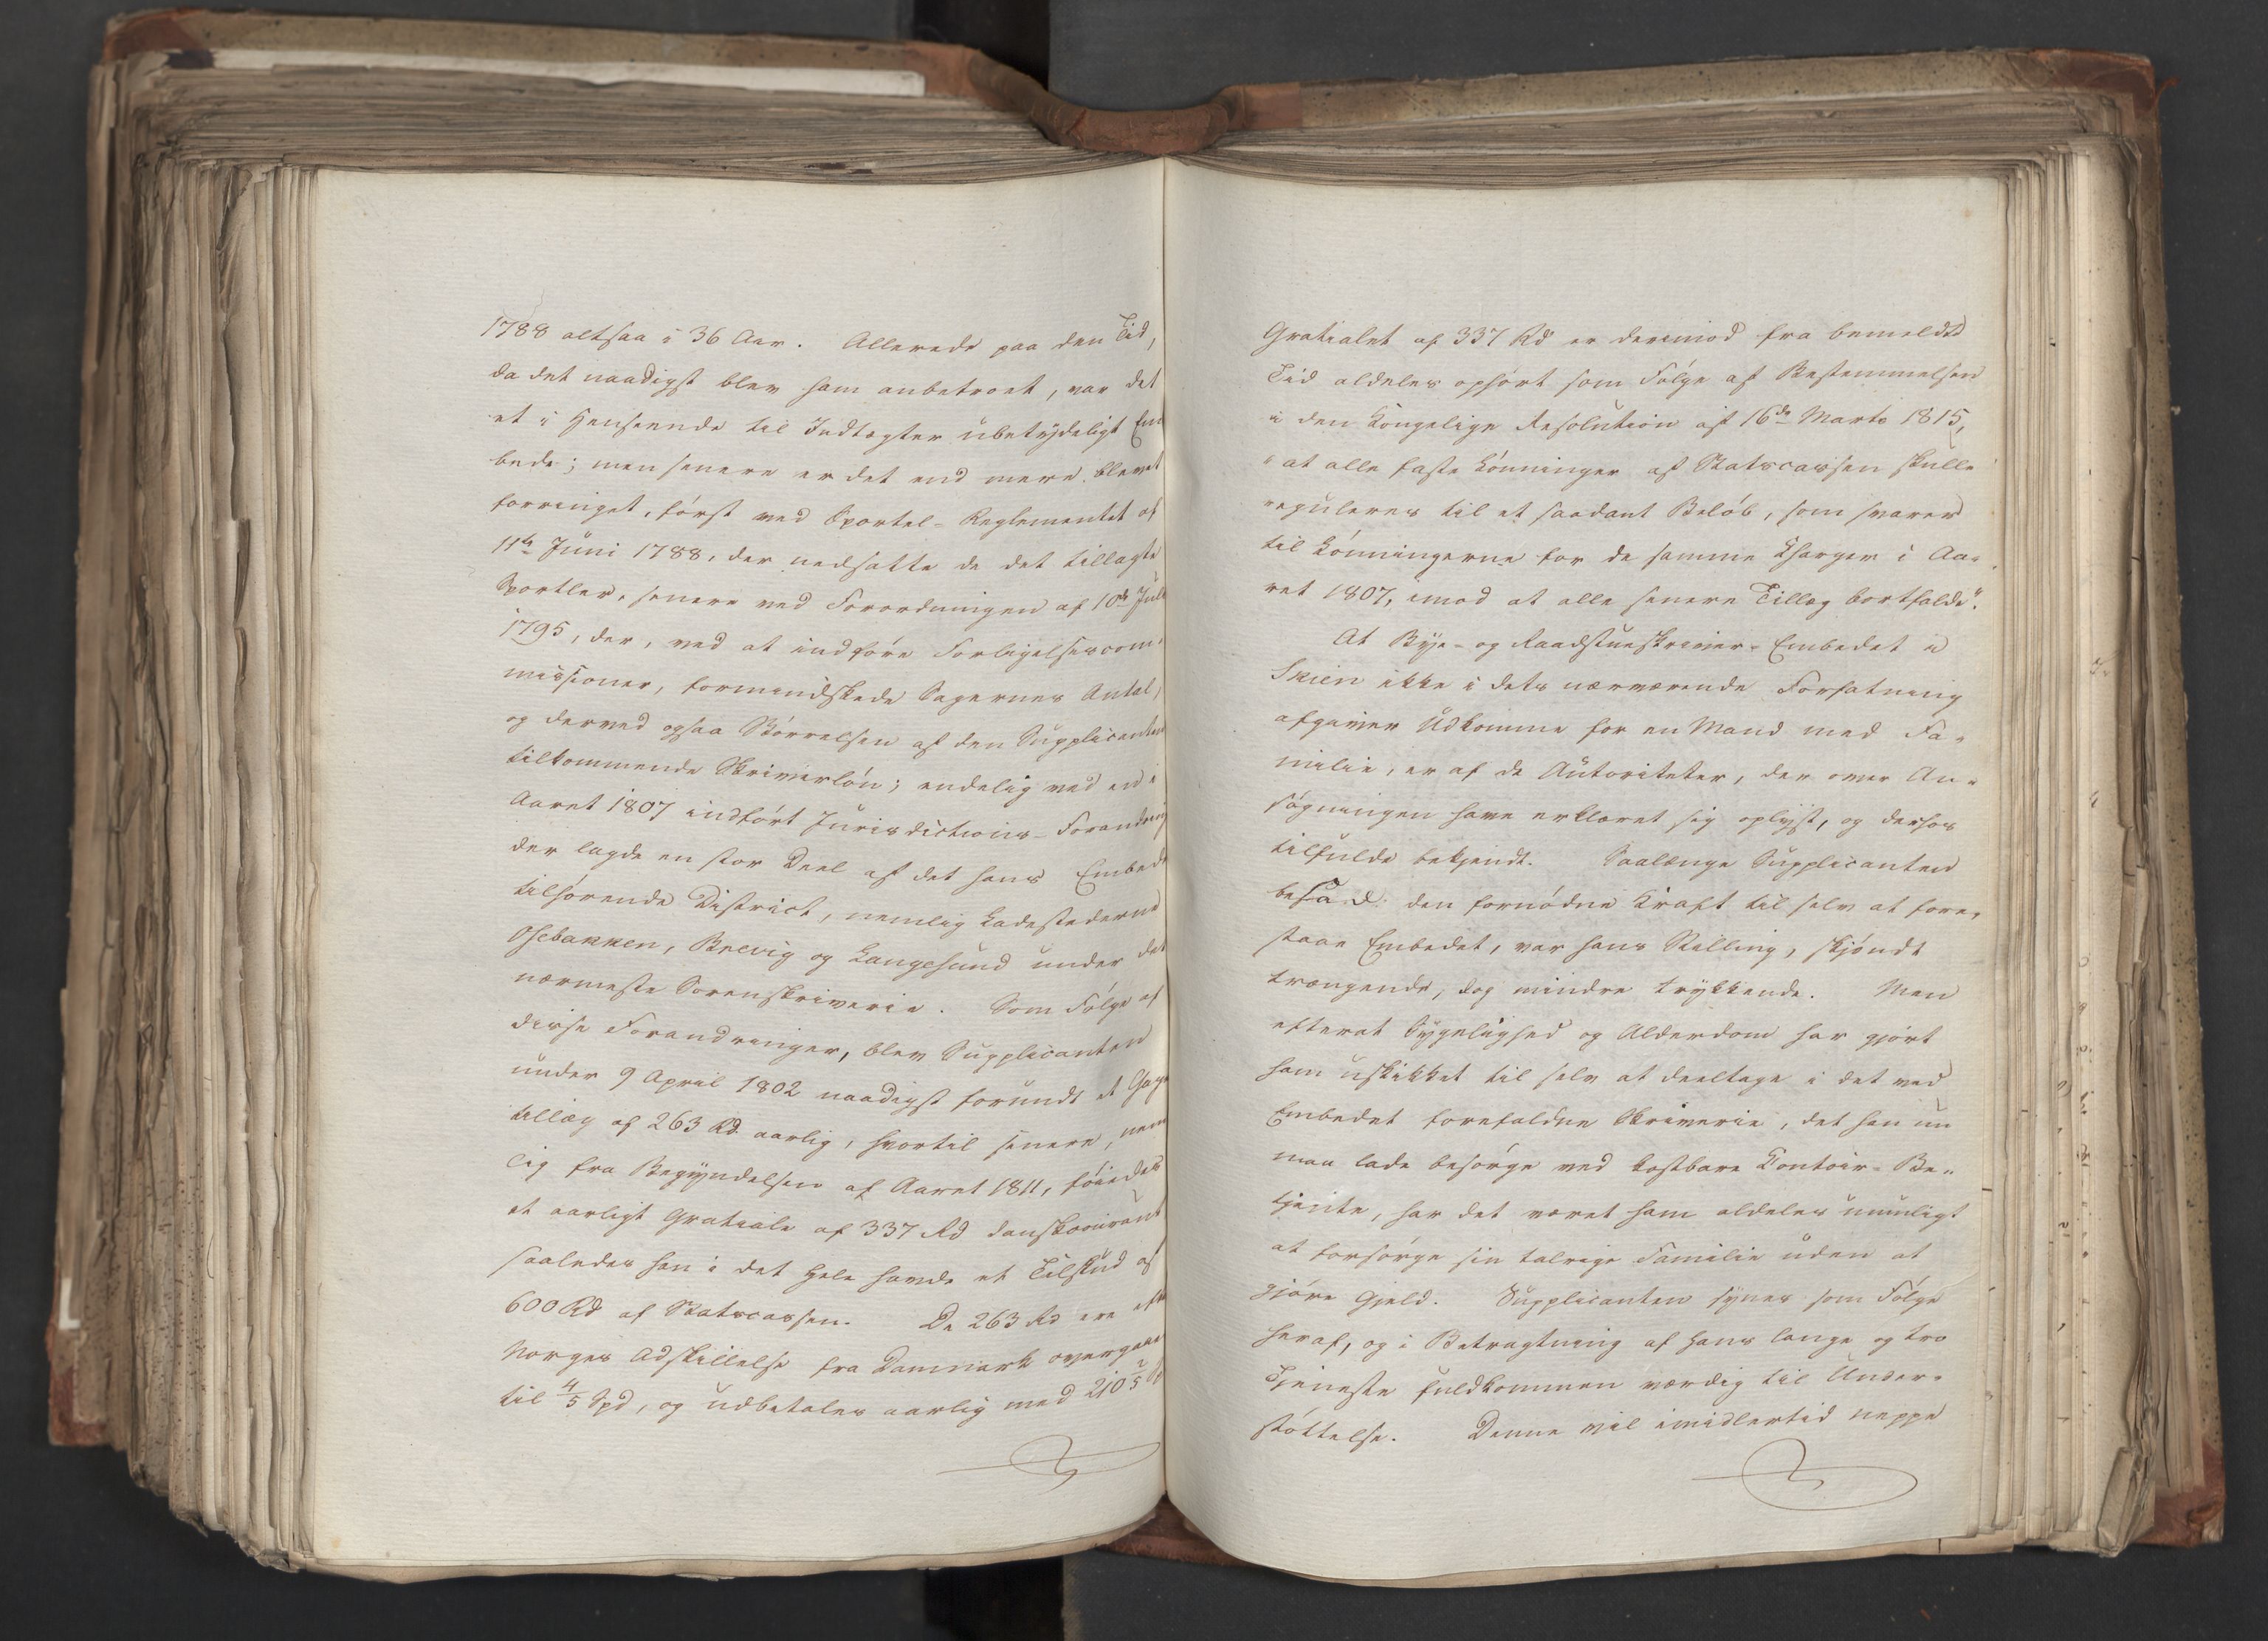 1788 altsaa i 36 Aar. Allerede paa den Tid,
da det naadigst blev ham anbetroet, var det
et i Henseende til Indtægter ubetydeligt Em
bede; men senere er det end mere blevet
forringet, först ved Sportel-Reglementet af
11te Juni 1788, der nedsatte de det tillagte
Sportler, senere ved Forordningen af 10de Juli
1795, der, ved at indföre Forligelsescom-
missioner, formindskede Sagernes Antal,
og derved ogsaa Störrelsen af den Supplicanten
tilkommende Skriverlön; endelig ved en i
Aaret 1807 indfört Jurisdictions-Forandring
der lagde en stor Deel af det hans Embede
tilhörende District, nemlig Ladestederne
Osebakken, Brevig og Langesund under det
nærmeste Sorenskriverie. Som Fölge af
disse Forandringer, blev Supplicanten
under 9 April 1802 naadigst forundt et Gage
tillæg af 263 Rd aarlig, hvortil senere, nem
lig fra Begyndelsen af Aaret 1811, föiedes
et aarligt Gratiale af 337 Rd danskcourant
saaledes han i det Hele havde et Tilskud af
600 Rd af Statscassen. De 263 Rd ere efter
Norges Adskillelse fra Danmark overgaaet
til 4/5 Spd, og udbetales aarlig med 210 2/5 Sp
Gratialet af 337 Rd er derimod fra bemeldte
Tid aldeles ophört som Fölge af Bestemmelsen
i den Kongelige Resolution af 16de Marts 1815,
"at alle faste Lönninger af Statscassen skulle
reguleres til et saadant Belöb, som svarer
til Lönningerne for de samme Charger i Aa-
ret 1807, imod at alle senere Tillæg bortfalde".
At Bye- og Raadstueskriver-Embedet i
Skien ikke i dets nærværende Forfatning
afgiver Udkomme for en Mand med Fa-
milie, er af de Autoriteter, der over An-
sögningen have erklæret sig oplyst, og derhos
tilfulde bekjendt. Saalænge Supplicanten
besad den fornödne Kraft til selv at fore-
staae Embedet, var hans Stilling, skjöndt
trængende, dog mindre trykkende. Men
efterat Sygelighed og Alderdom har gjort
ham uskikket til selv at deeltage i det ved
Embedet forefaldne Skriverie, det han nu
maa lade besörge ved kostbare Contoir-Be-
tjente, har det været ham aldeles umuligt
at forsörge sin talrige Familie uden at
gjöre Gjeld. Supplicanten synes som Fölge
heraf, og i Betragtning af hans lange og tro
Tjeneste fuldkommen værdig til Under-
stöttelse. Denne vil imidlertid neppe